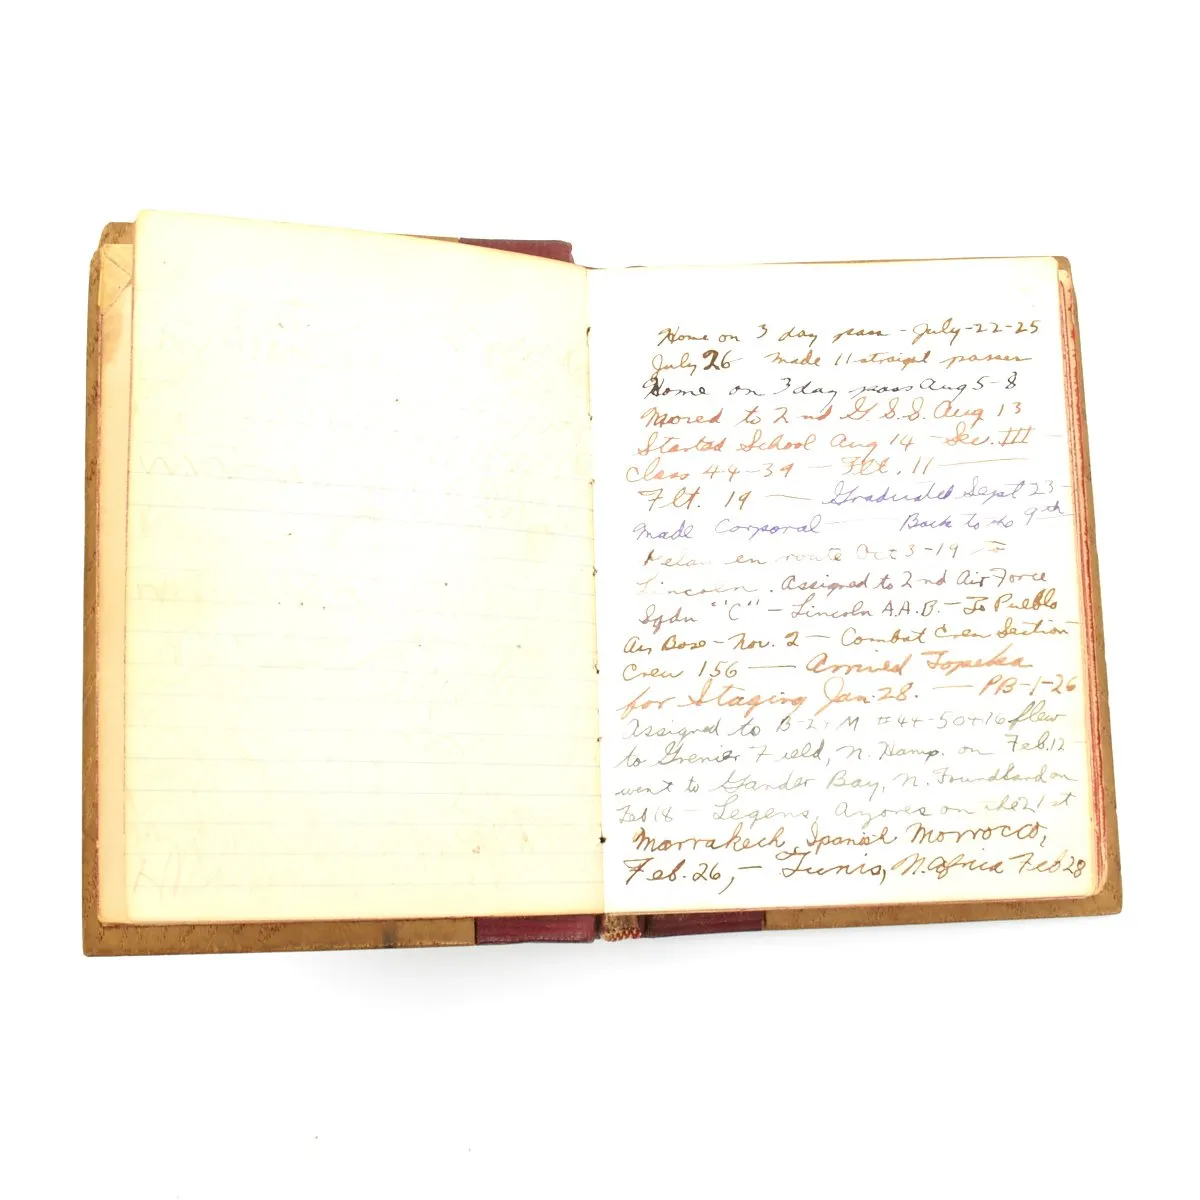 Home on 3 day pass - July-22-25
July 26 made 11 straight passes
Home on 3 day pass Aug 5-8
Moved to 2nd G.S.S. Aug 13
Started School Aug 14 - Sec. III -
Class 44-39 - Flt. 11 —
Flt. 19 — Graduated Sept 23-
made Corporal — Back to the 9th
Delay en route Oct 3-19 to
Lincoln. Assigned to 2nd Air Force
Sqdn "C" - Lincoln A.A.B. - To Pueblo
Air Base - Nov. 2 - Combat Crew Section
Crew 156 — Arrived Topeka
for Staging Jan. 28. — PB-1-26
Assigned to B-24 M #44-50416 flew
to Grenier Field, N. Hamp. on Feb. 12 -
went to Gander Bay, N. Foundland on
Feb 18 - Legens, Azores on the 21st
Marrakech, Spanish Morrocco,
Feb. 26, - Tunis, N. Africa Feb 28